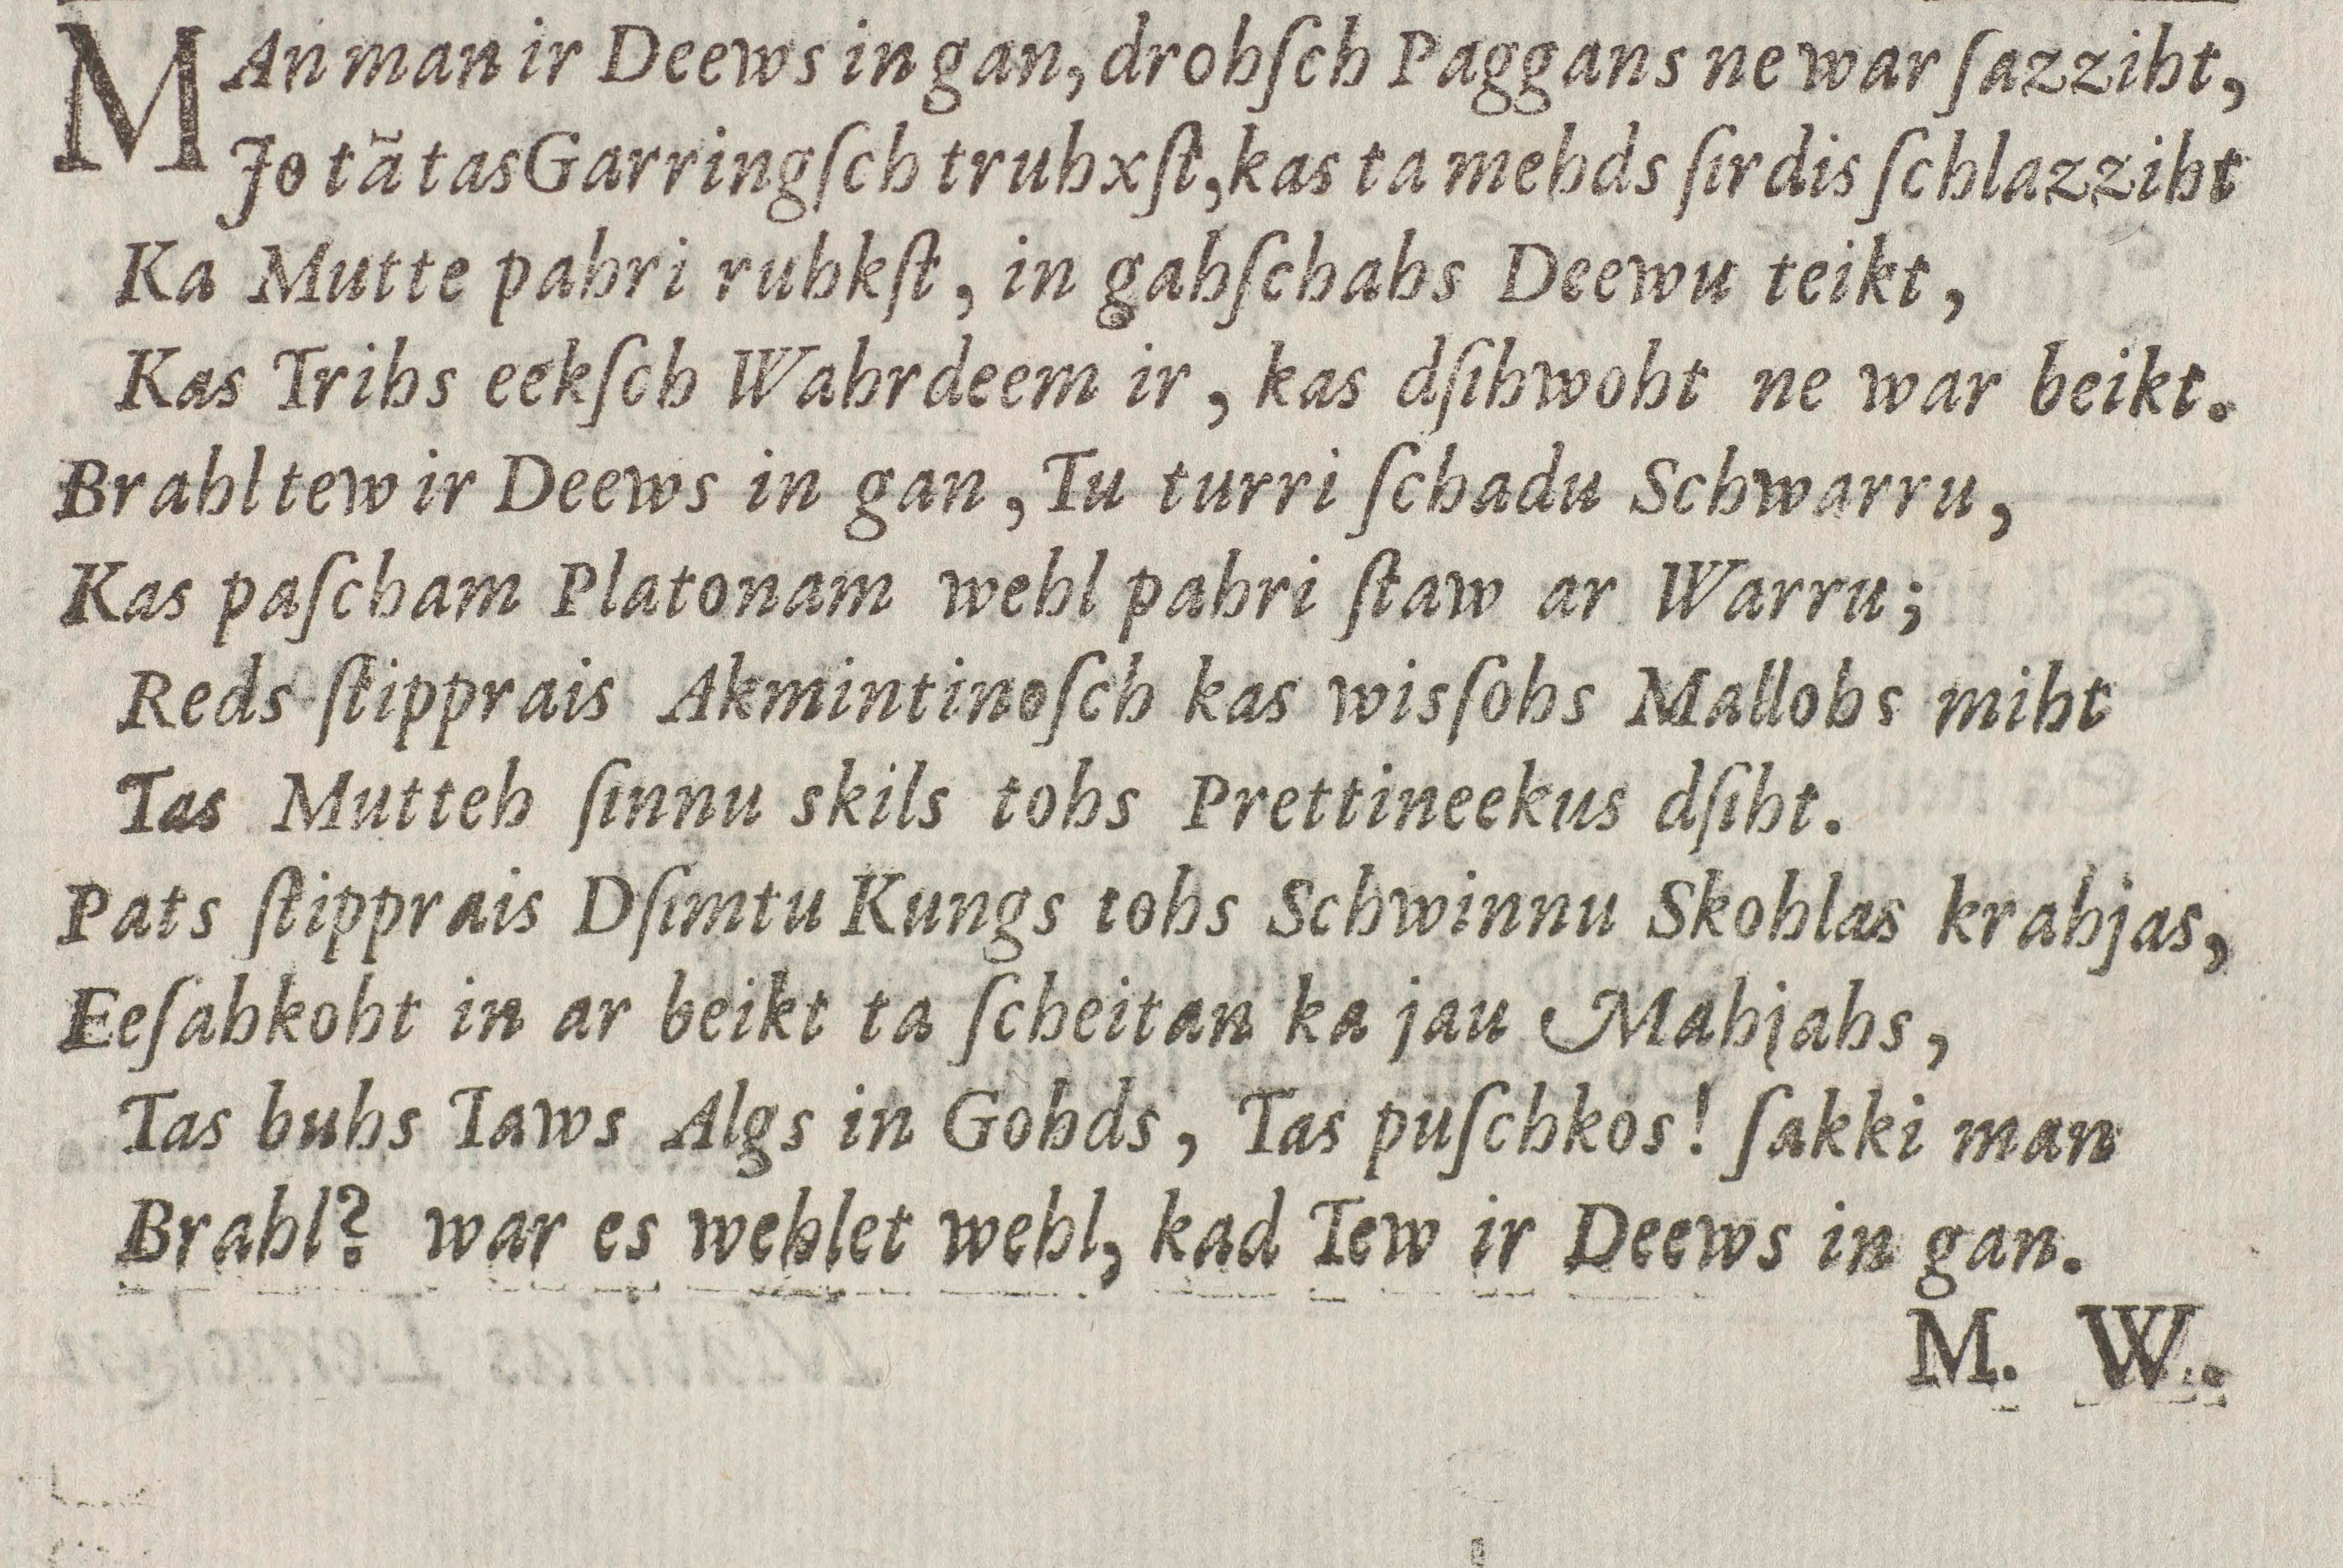 MAn man ir Deews in gan, drohſch Paggans ne war ſazziht,
Jo tã tas Garringſch truhxſt, kas ta mehds ſirdis ſchlazziht
Ka Mutte pahri ruhkſt, in gahſchahs Deewu teikt,
Kas Trihs eekſch Wahrdeem ir, kas dſihwoht ne war beikt.
Brahl tew ir Deews in gan, Tu turri ſchadu Schwarru,
Kas paſcham Platonam wehl pahri ſtaw ar Warru;
Reds ſtipprais Akmintinoſch kas wisſohs Mallohs miht
Tas Mutteh ſinnu skils tohs Prettineekus dſiht.
Pats ſtipprais Dſimtu Kungs tohs Schwinnu Skohlas krahjas,
Eeſahkoht in ar beikt ta ſcheitan ka jau Mahjahs,
Tas buhs Taws Algs in Gohds, Tas puſchkos! ſakki man
Brahl? war es wehlet wehl, kad Tew ir Deews in gan.
M. W.